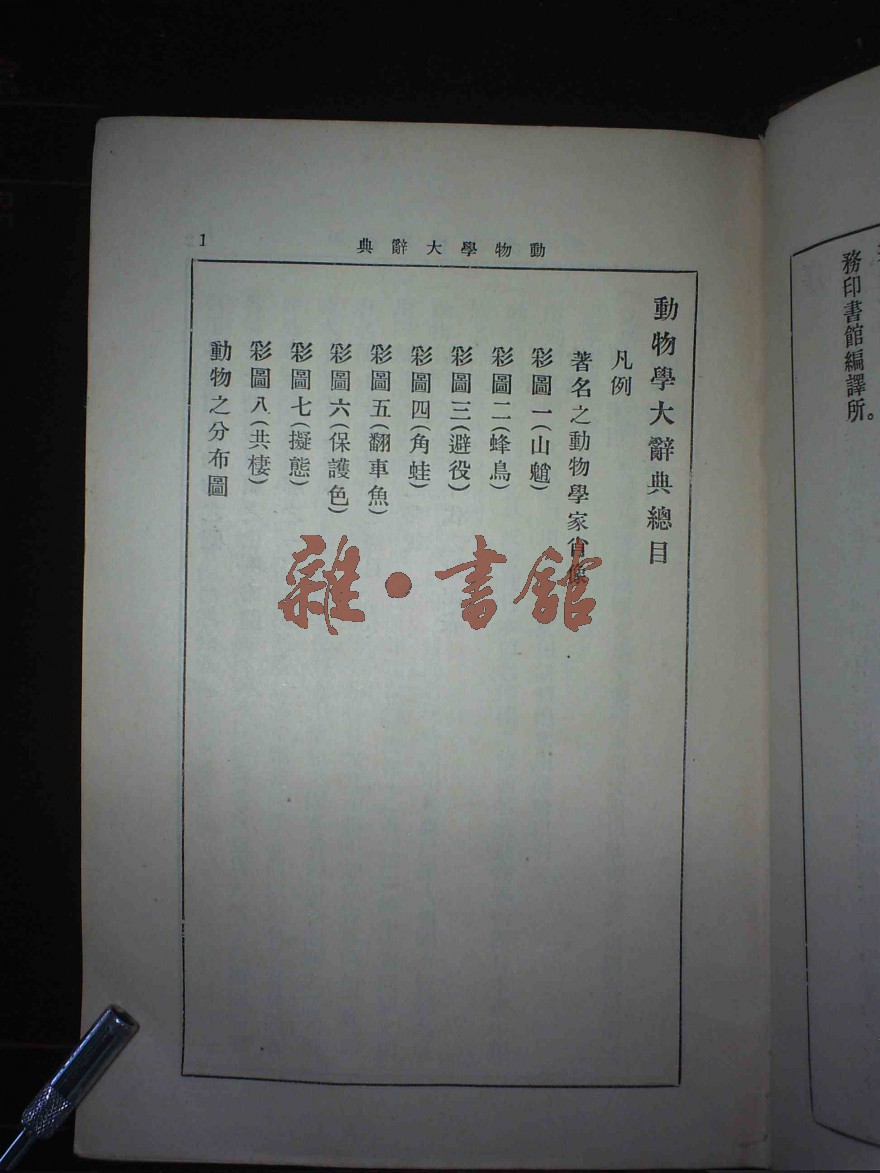 務印書館編譯所。
動物學大辭典
1
動物學大辭典總目
凡例
著名之動物學家肖像
彩圖一(山魈)
彩圖二(蜂鳥)
彩圖三(避役)
彩圖四(角蛙)
彩圖五(翻車魚)
彩圖六(保護色)
彩圖七(擬態)
彩圖八(共棲)
動物之分布圖
雜·書館